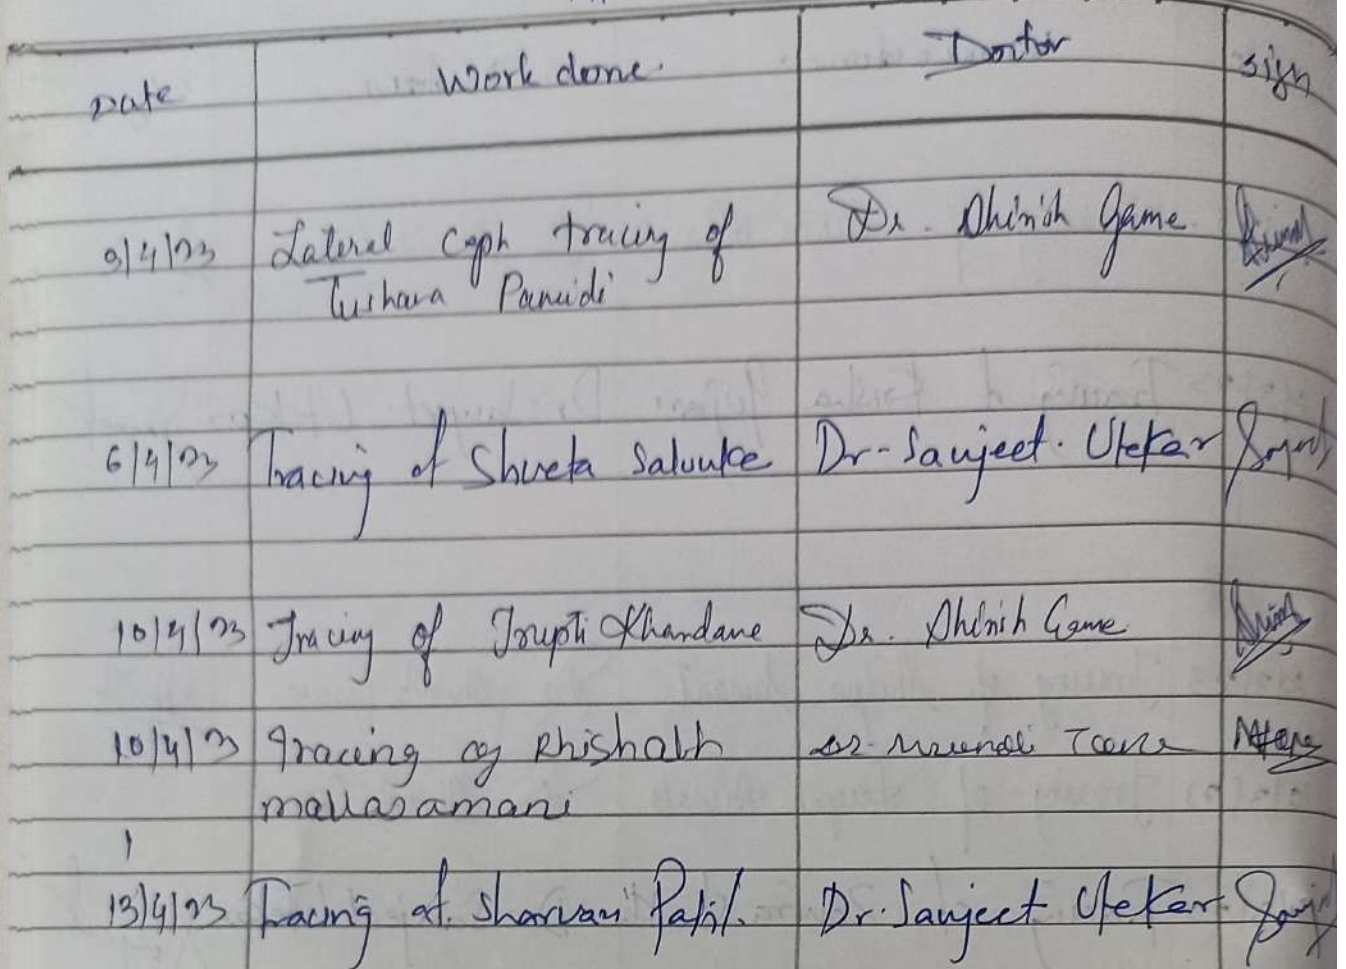 Date Work done. Doctor sign
9/4/23 Lateral Ceph tracing of Dr. Dhinish Game
Tushara Panuidi
6/4/23 Tracing of Shweta Salunke Dr-Sanjeet. Utekar
10/4/23 Tracing of Trupti Khandane Dr. Dhinish Game
10/4/23 Tracing of Rhishabh
mallasamani
13/4/23 Tracing of. Sharvari Patil. Dr. Sanjeet Utekar